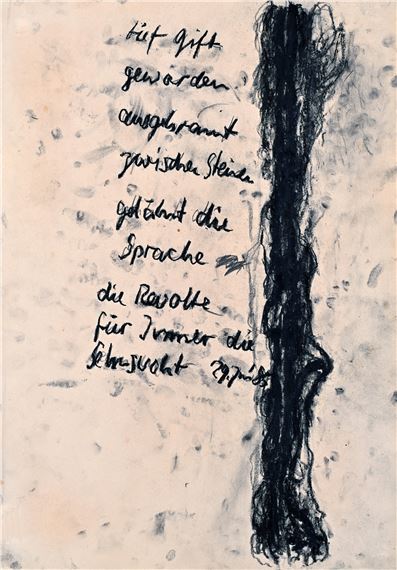 tief Gift
geworden
ausgebrannt
zwischen Steinen
gelähmt die
Sprache
die Revolte
für Immer die
Sehnsucht